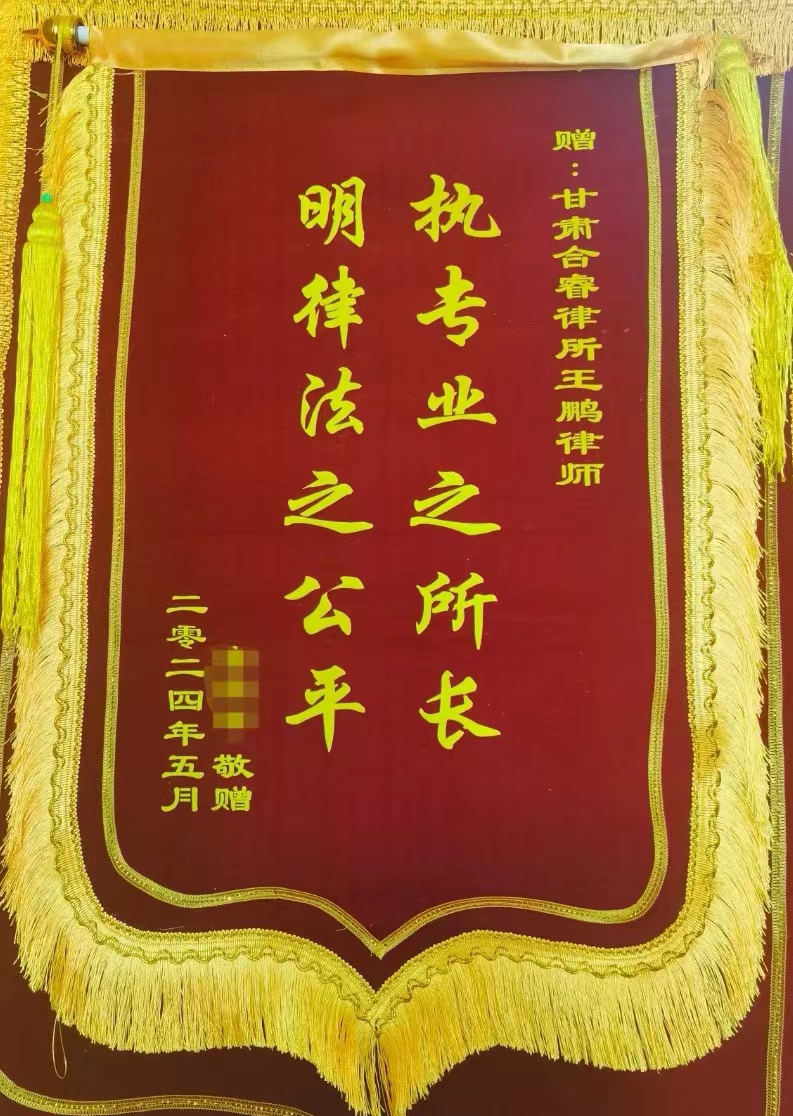 赠：甘肃合睿律所王鹏律师
执专业之所长
明律法之公平
敬赠
二零二四年五月